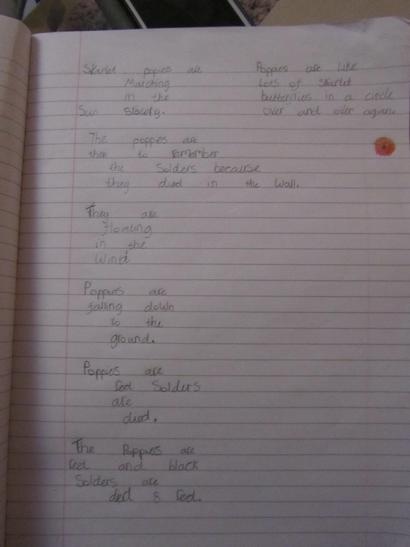 Skarlet popies are
Marching
in the
Sun Slowly.
The poppies are
ther to remember
the Solders becourse
they died in the Wall.
They are
floating
in the
Wind
Poppies are
falling down
to the
ground.
Poppies are
red Solders
are
died.
The Poppies are
red and black
Solders are
ded & red.
Poppies are like
lots of Skarlet
butterflies in a circle
over and over again